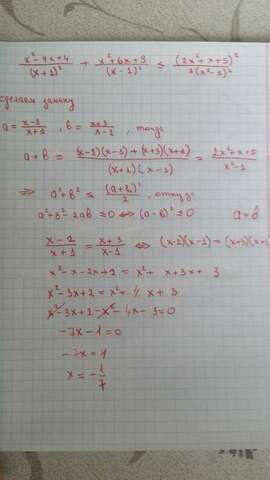 x²-4x+4/(x+1)² + x²+6x+9/(x-1)² ≤ (2x²+x+5)²/2(x²-1)²
сделаем замену
a = x-2/x+1, b = x+3/x-1, тогда
a+b = (x-2)(x-1)+(x+3)(x+1)/(x+1)(x-1) = 2x²+x+5/x²-1
⇒ a²+b² ≤ (a+b)²/2, откуда
a²+b²-2ab ≤0 ⇔ (a-b)² ≤0 a=b
x-2/x+1 = x+3/x-1 ⇔ (x-2)(x-1) = (x+3)(x
x²-x-2x+2 = x²+ x+3x+ 3
x²-3x+2 = x²+ 4 x + 3
x²-3x+2-x²-4x-3=0
-7x-1=0
-7x=1
x = -1/7